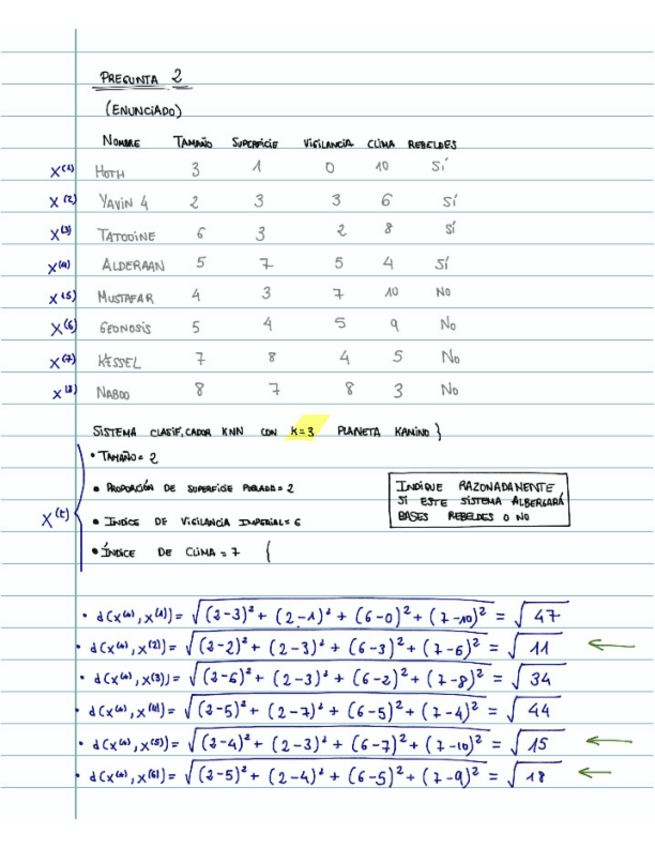 PREGUNTA 2
(ENUNCIADO)
NOMBRE TAMAÑO SUPERFICIE VIGILANCIA CLIMA REBELDES
X⁽¹⁾ HOTH 3 1 0 10 SÍ
X⁽²⁾ YAVIN 4 2 3 3 6 SÍ
X⁽³⁾ TATOOINE 6 3 2 8 SÍ
X⁽⁴⁾ ALDERAAN 5 7 5 4 SÍ
X⁽⁵⁾ MUSTAFAR 4 3 7 10 NO
X⁽⁶⁾ GEONOSIS 5 4 5 9 No
X⁽⁷⁾ KESSEL 7 8 4 5 No
X⁽⁸⁾ NABOO 8 7 8 3 No
SISTEMA CLASIFICADOR KNN CON K=3 PLANETA KAMINO }
• TAMAÑO = 2
• PROPORCIÓN DE SUPERFICIE POBLADA = 2
X⁽ᵗ⁾ { • ÍNDICE DE VIGILANCIA IMPERIAL = 6
• ÍNDICE DE CLIMA = 7 {
INDIQUE RAZONADAMENTE
SI ESTE SISTEMA ALBERGARÁ
BASES REBELDES O NO
• d(x⁽ᵗ⁾, x⁽¹⁾) = √((2-3)² + (2-1)² + (6-0)² + (7-10)²) = √47
• d(x⁽ᵗ⁾, x⁽²⁾) = √((2-2)² + (2-3)² + (6-3)² + (7-6)²) = √11 ←
• d(x⁽ᵗ⁾, x⁽³⁾) = √((2-6)² + (2-3)² + (6-2)² + (7-8)²) = √34
• d(x⁽ᵗ⁾, x⁽⁴⁾) = √((2-5)² + (2-7)² + (6-5)² + (7-4)²) = √44
• d(x⁽ᵗ⁾, x⁽⁵⁾) = √((2-4)² + (2-3)² + (6-7)² + (7-10)²) = √15 ←
• d(x⁽ᵗ⁾, x⁽⁶⁾) = √((2-5)² + (2-4)² + (6-5)² + (7-9)²) = √18 ←